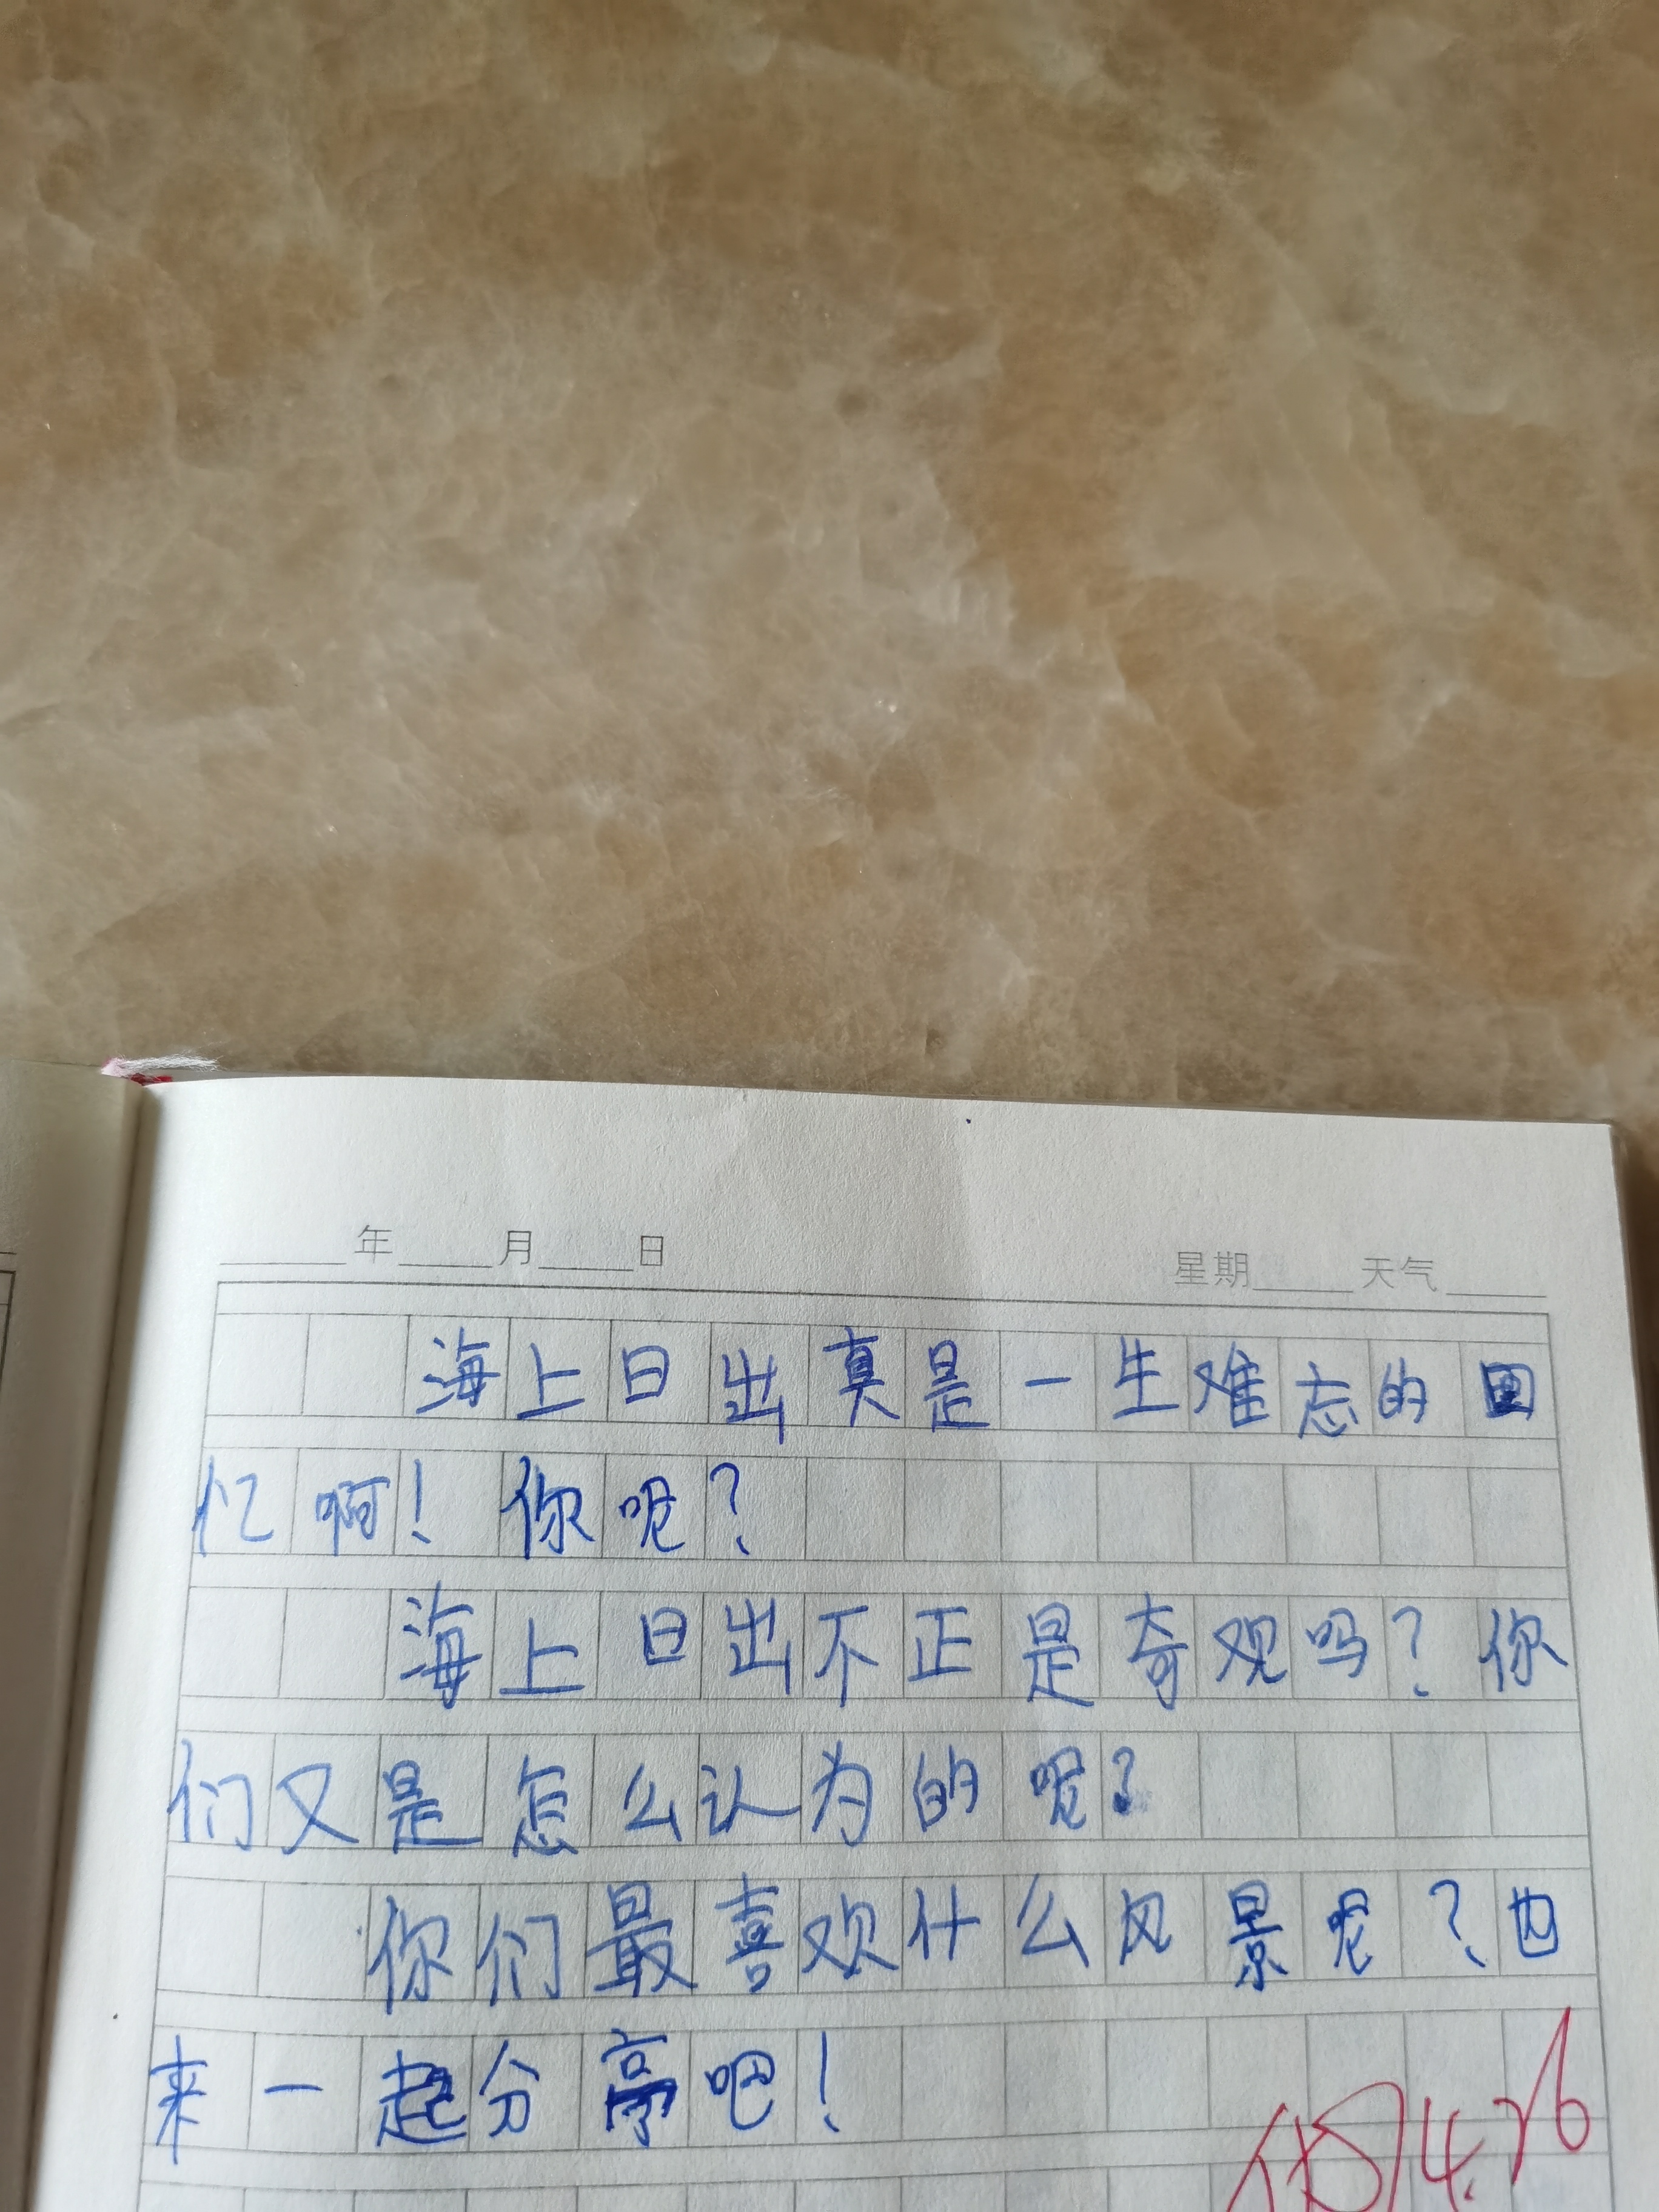 年 月 日 星期 天气
海上日出真是一生难忘的回
忆啊!你呢?
海上日出不正是奇观吗?你
们又是怎么认为的呢?
你们最喜欢什么风景呢?也
来一起分享吧!
4.26